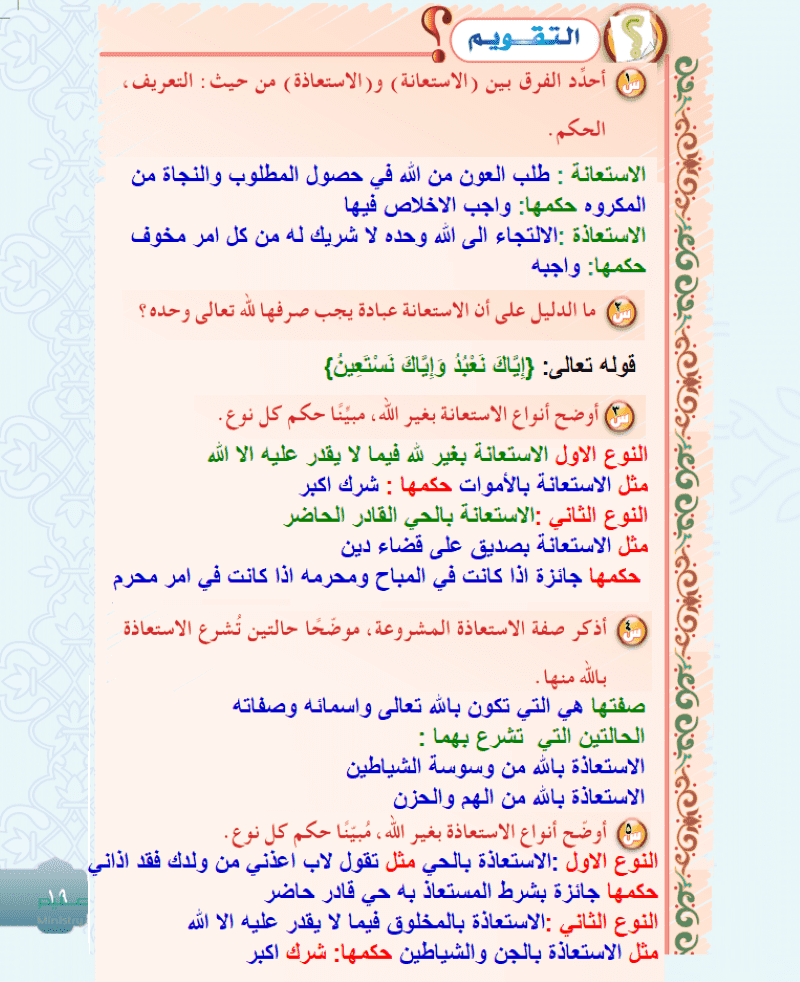 التقويم
س١ أحدِّد الفرق بين (الاستعانة) و(الاستعاذة) من حيث: التعريف،
الحكم.
الاستعانة : طلب العون من الله في حصول المطلوب والنجاة من
المكروه حكمها: واجب الاخلاص فيها
الاستعاذة :الالتجاء الى الله وحده لا شريك له من كل امر مخوف
حكمها: واجبه
س٢ ما الدليل على أن الاستعانة عبادة يجب صرفها لله تعالى وحده؟
قوله تعالى: {إِيَّاكَ نَعْبُدُ وَإِيَّاكَ نَسْتَعِينُ}
س٣ أوضح أنواع الاستعانة بغير الله، مبيِّنًا حكم كل نوع.
النوع الاول الاستعانة بغير لله فيما لا يقدر عليه الا الله
مثل الاستعانة بالأموات حكمها : شرك اكبر
النوع الثاني :الاستعانة بالحي القادر الحاضر
مثل الاستعانة بصديق على قضاء دين
حكمها جائزة اذا كانت في المباح ومحرمه اذا كانت في امر محرم
س٤ أذكر صفة الاستعاذة المشروعة، موضّحًا حالتين تُشرع الاستعاذة
بالله منها.
صفتها هي التي تكون بالله تعالى واسمائه وصفاته
الحالتين التي تشرع بهما :
الاستعاذة بالله من وسوسة الشياطين
الاستعاذة بالله من الهم والحزن
س٥ أوضّح أنواع الاستعاذة بغير الله، مُبيّنًا حكم كل نوع.
النوع الاول :الاستعاذة بالحي مثل تقول لاب اعذني من ولدك فقد اذاني
حكمها جائزة بشرط المستعاذ به حي قادر حاضر
النوع الثاني :الاستعاذة بالمخلوق فيما لا يقدر عليه الا الله
مثل الاستعاذة بالجن والشياطين حكمها: شرك اكبر
١٩